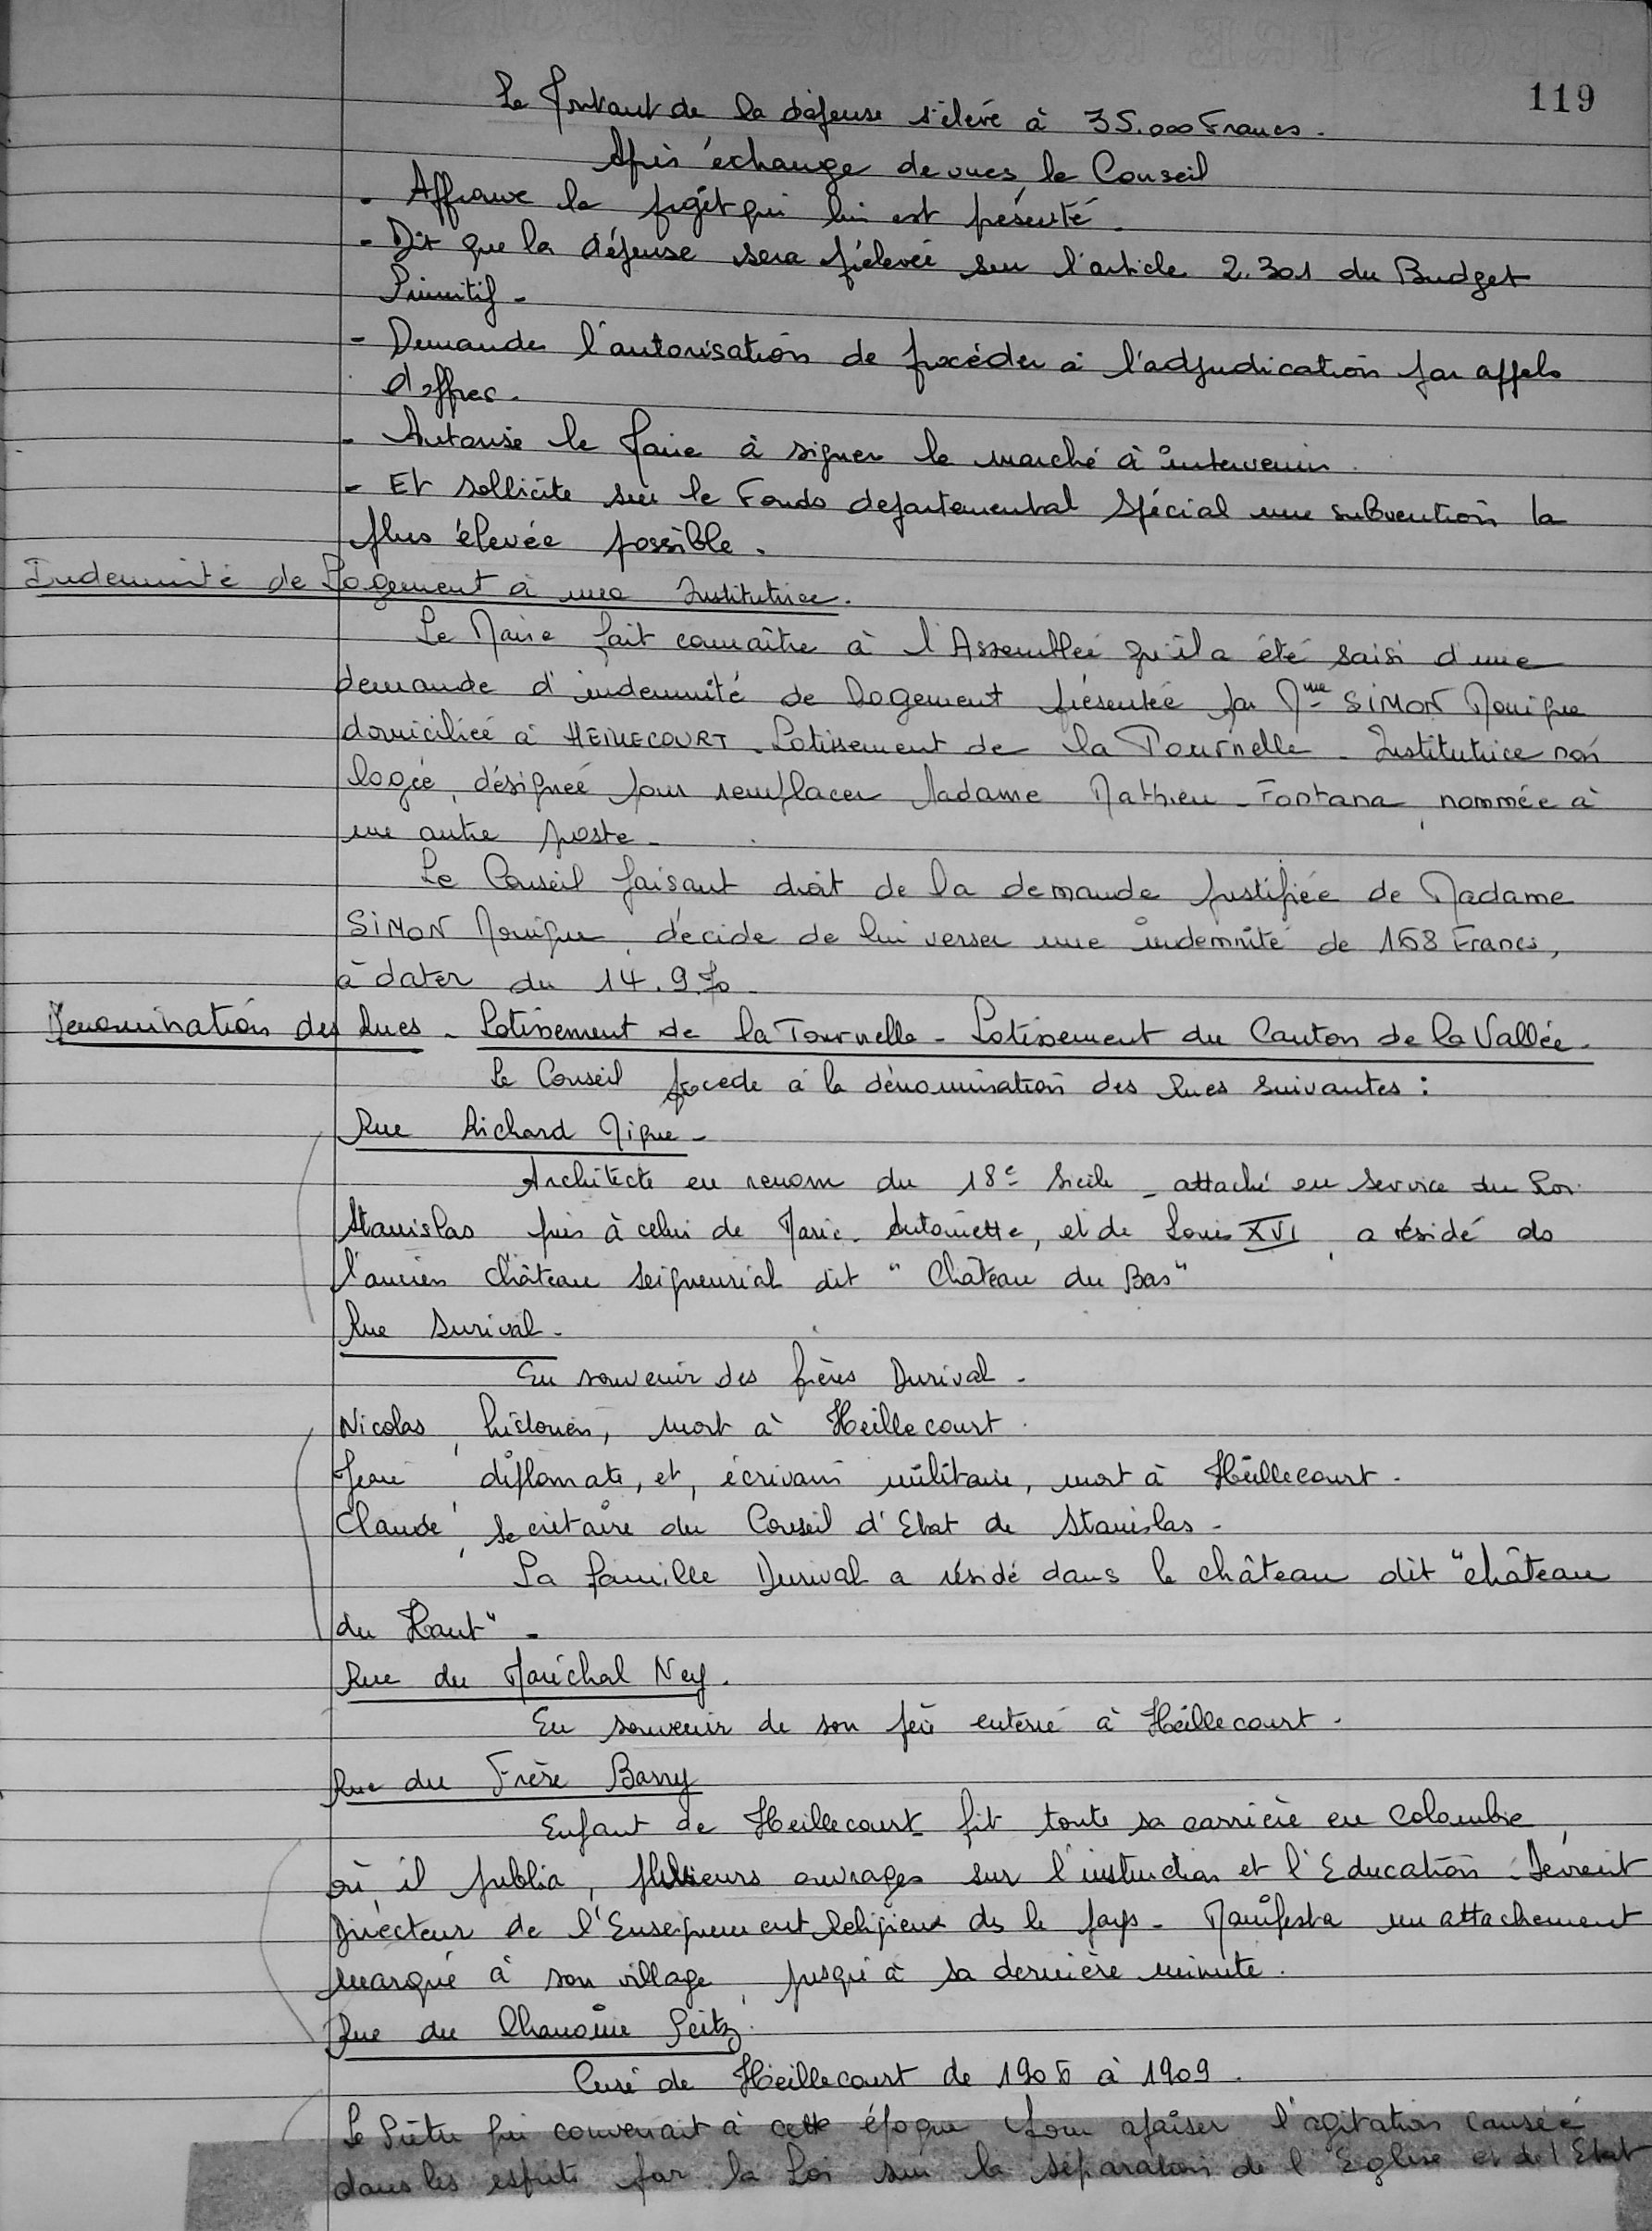 119
Le Montant de la dépense s'élève à 35.000 Francs.
Après échange de vues le Conseil
- Approuve le projet qui lui est présenté.
- Dit que la dépense sera prélevée sur l'article 2.301 du Budget
Primitif -
- Demande l'autorisation de procéder à l'adjudication par appels
d'offres.
- Autorise le Maire à signer le marché à intervenir.
- Et sollicite sur le Fonds départemental Spécial une subvention la
plus élevée possible.
Indemnité de Logement à une Institutrice.
Le Maire fait connaître à l'Assemblée qu'il a été saisi d'une
demande d'indemnité de logement présentée par Mme SIMON Monique
domiciliée à HEILLECOURT - Lotissement de la Tournelle - Institutrice non
logée, désignée pour remplacer Madame Mathieu-Fontana, nommée à
un autre poste -
Le Conseil faisant droit de la demande justifiée de Madame
SIMON Monique, décide de lui verser une indemnité de 168 Francs,
à dater du 14.9.70 -
Dénomination des Rues - Lotissement de la Tournelle - Lotissement du Canton de la Vallée -
Le Conseil procède à la dénomination des Rues suivantes :
Rue Richard Mique -
Architecte en renom du 18e Siècle - attaché au Service du Roi
Stanislas puis à celui de Marie-Antoinette, et de Louis XVI, a résidé ds
l'ancien Château Seigneurial dit "Château du Bas"
Rue Durival -
En souvenir des frères Durival -
Nicolas, historien, mort à Heillecourt.
Jean, diplomate, et, écrivain militaire, mort à Heillecourt -
Claude, secrétaire du Conseil d'Etat de Stanislas -
La famille Durival a résidé dans le château dit "château
du Haut" -
Rue du Maréchal Ney.
En souvenir de son père enterré à Heillecourt -
Rue du Frère Barry
Enfant de Heillecourt - fit toute sa carrière en Colombie,
où il publia, plusieurs ouvrages sur l'instruction et l'Education - Devint
Directeur de l'Enseignement Religieux ds le pays - Manifesta un attachement
marqué à son village, jusqu'à sa dernière minute.
Rue du Chanoine Peitz.
Curé de Heillecourt de 1906 à 1909.
Le Prêtre qui convenait à cette époque pour apaiser l'agitation causée
dans les esprits par la Loi sur la séparation de l'Eglise et de l'Etat